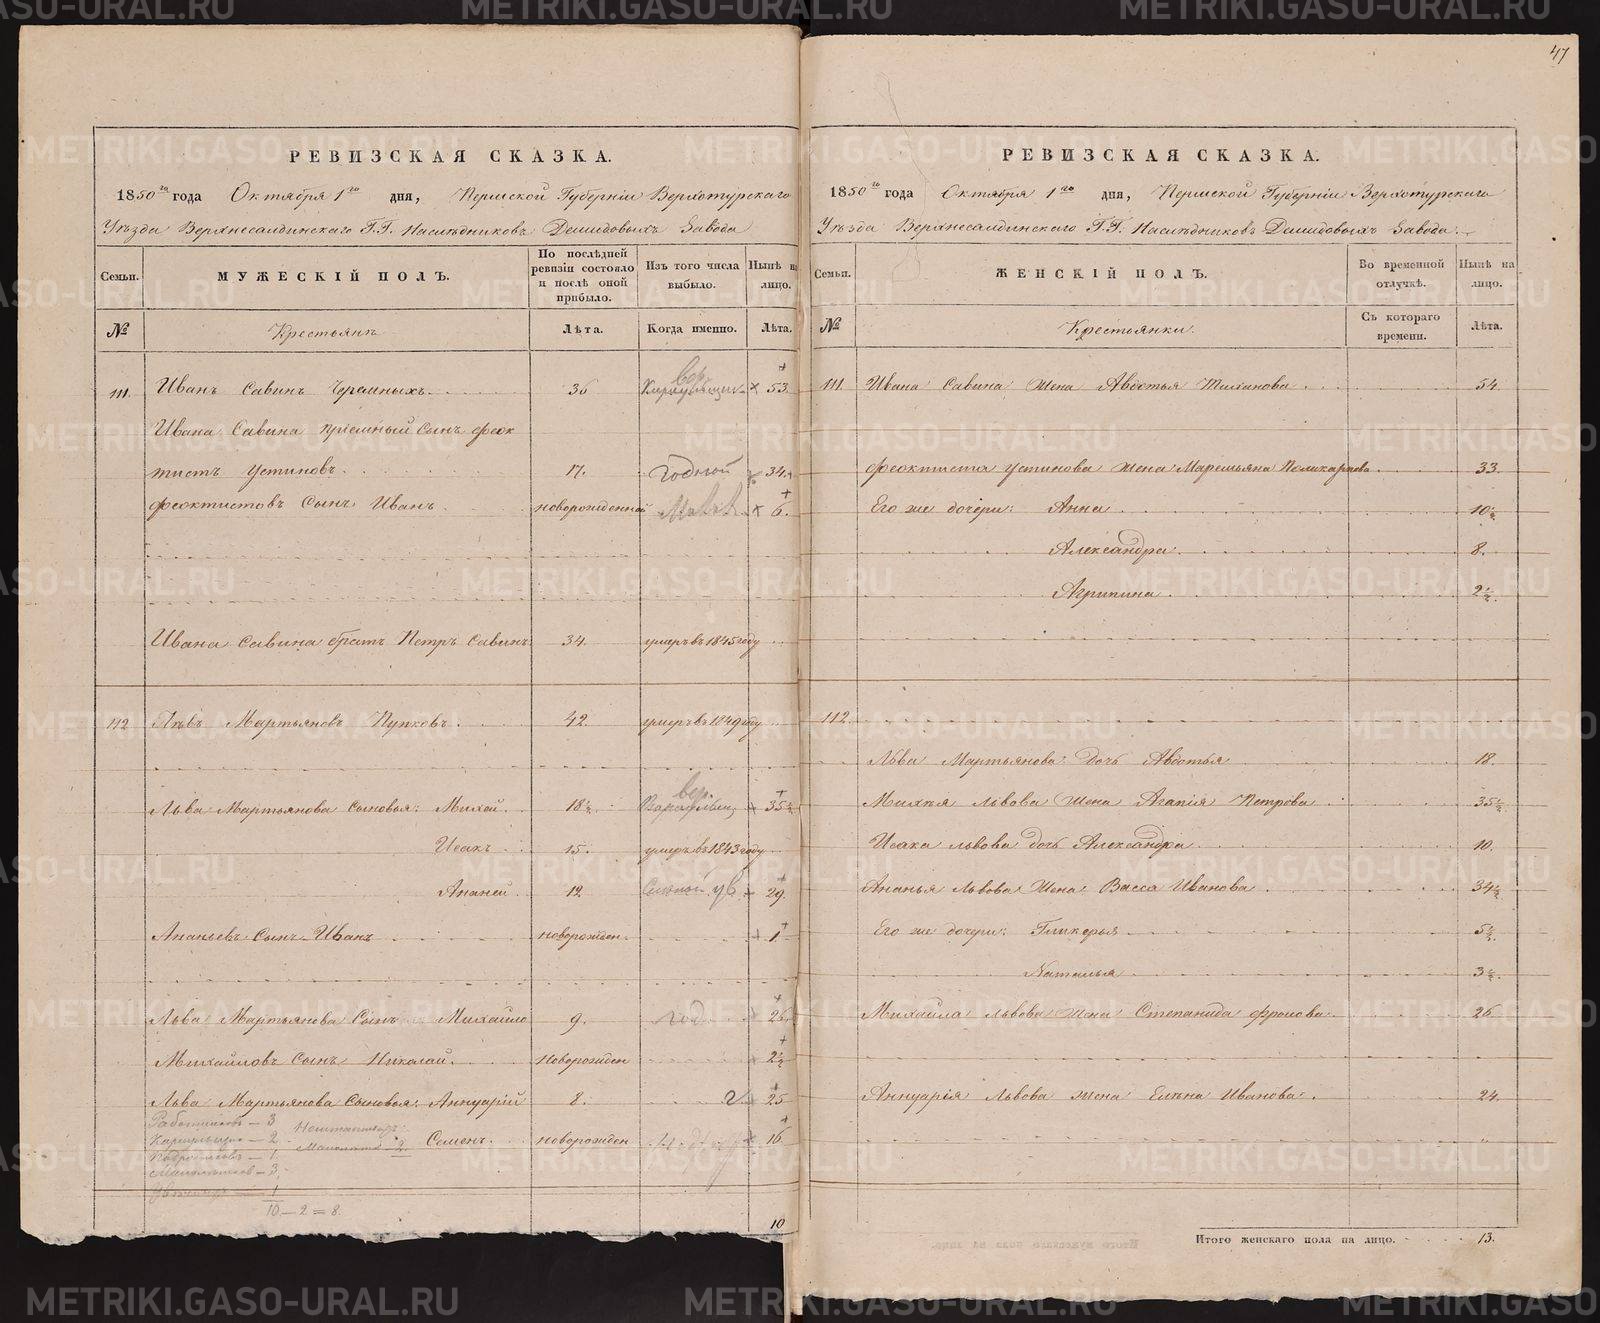 47
РЕВИЗСКАЯ СКАЗКА.
1850го года Октября 1го дня, Пермской Губерніи Верхотурскаго
Уѣзда Верхнесалдинскаго Г.Г. Наслѣдниковъ Демидовыхъ Завода
Семьи.
МУЖЕСКІЙ ПОЛЪ.
По послѣдней ревизіи состояло и послѣ оной прибыло.
Изъ того числа выбыло.
Нынѣ на лицо.
№
Крестьянъ
Лѣта.
Когда именно.
Лѣта.
111. Иванъ Савинъ Черемныхъ 36 53.
Ивана Савина приемный сынъ Феок
тистъ Устиновъ 17. Годной 34.
Феоктистовъ Сынъ Иванъ новорожденной 6.
Ивана Савина братъ Петръ Савинъ 34. умеръ въ 1845 году
112 Левъ Мартьяновъ Пупковъ 42. умеръ въ 1849 году
Льва Мартьянова сыновья: Михей 18½ 35½
Исакъ 15. умеръ въ 1843 году
Ананей 12. 29.
Ананьевъ Сынъ Иванъ новорожден. 1
Льва Мартьянова Сынъ Михайло 9. год 26.
Михайловъ Сынъ Николай новорожден 2½
Льва Мартьянова Сыновья: Аннуарій 8. 25
Семенъ новорожден 16.
Работников — 3
— 2
— 1
— 3
— 1
10 — 2 = 8
10
РЕВИЗСКАЯ СКАЗКА.
1850го года Октября 1го дня, Пермской Губерніи Верхотурскаго
Уѣзда Верхнесалдинскаго Г.Г. Наслѣдниковъ Демидовыхъ Завода.
Семьи.
ЖЕНСКІЙ ПОЛЪ.
Во временной отлучкѣ.
Нынѣ на лицо.
№
Крестьянки.
Съ котораго времени.
Лѣта.
111. Ивана Савина жена Авдотья 54.
Феоктиста Устинова жена Маремьяна Поликарпова 33.
Его же дочери: Анна 10½
Александра 8.
Агрипина 2½
112.
Льва Мартьянова дочь Авдотья 18
Михея Львова жена Агапія Петрова 35½
Исака Львова дочь Александра 10.
Ананья Львова жена Васса Иванова 34½
Его же дочери: Гликерья 5½
Наталья 3½
Михайла Львова жена Степанида Фролова 26
Аннуарія Львова жена Елена Иванова 24.
Итого женскаго пола на лицо. 13.
METRIKI.GASO-URAL.RU